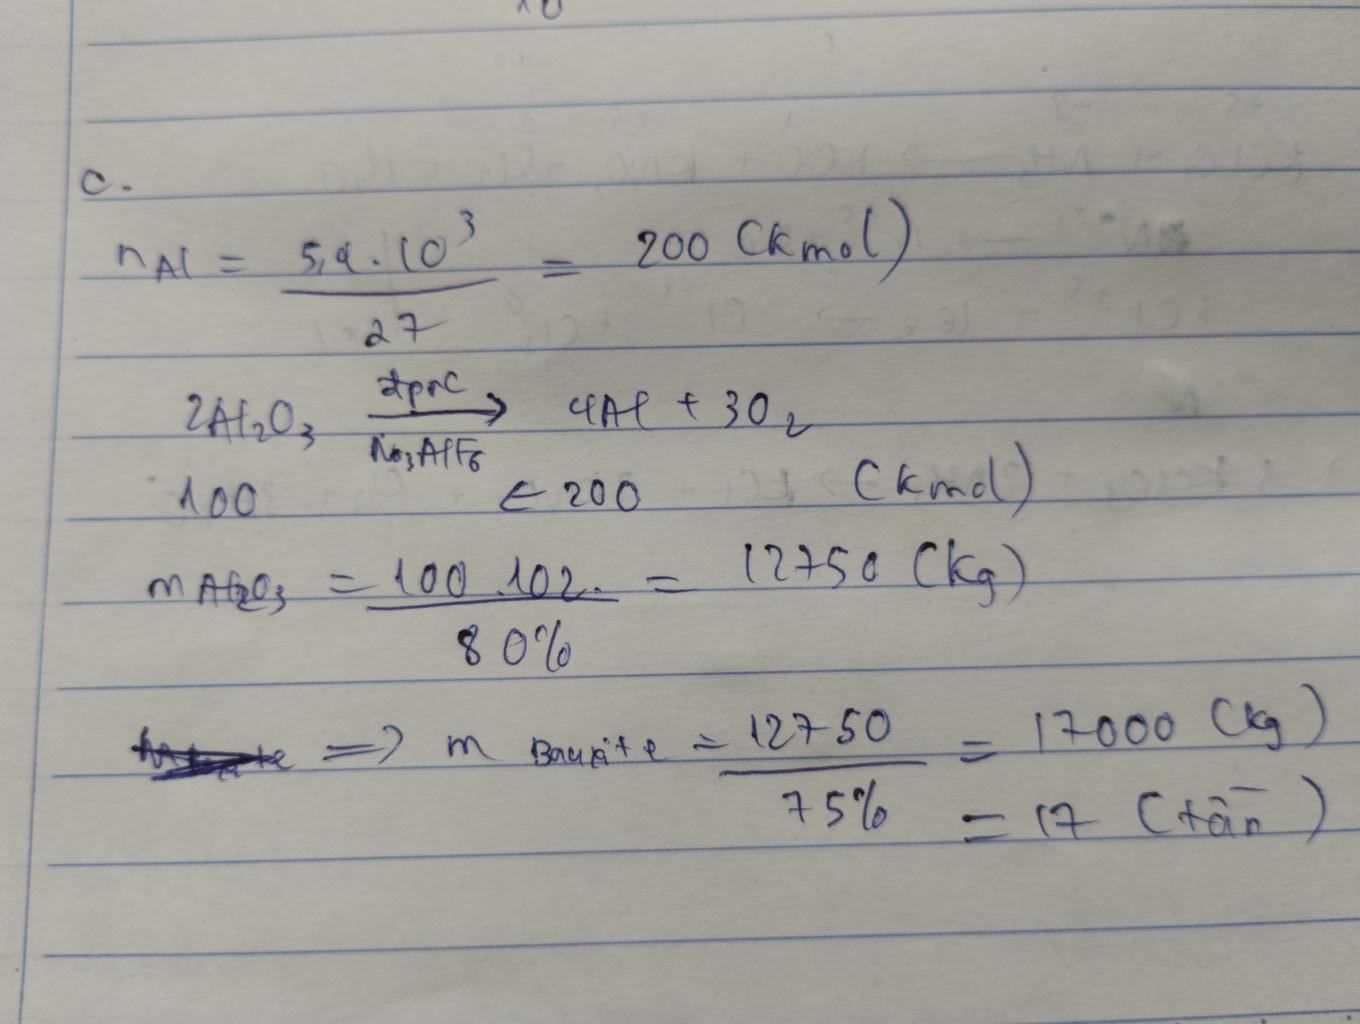 c.
nAl = 5,4.10³ / 27 = 200 (kmol)
2Al₂O₃ đpnc → Na₃AlF₆ 4Al + 3O₂
100 ← 200 (kmol)
mAl₂O₃ = 100.102. / 80% = 12750 (kg)
=> m Bauxite = 12750 / 75% = 17000 (kg)
= 17 (tấn)